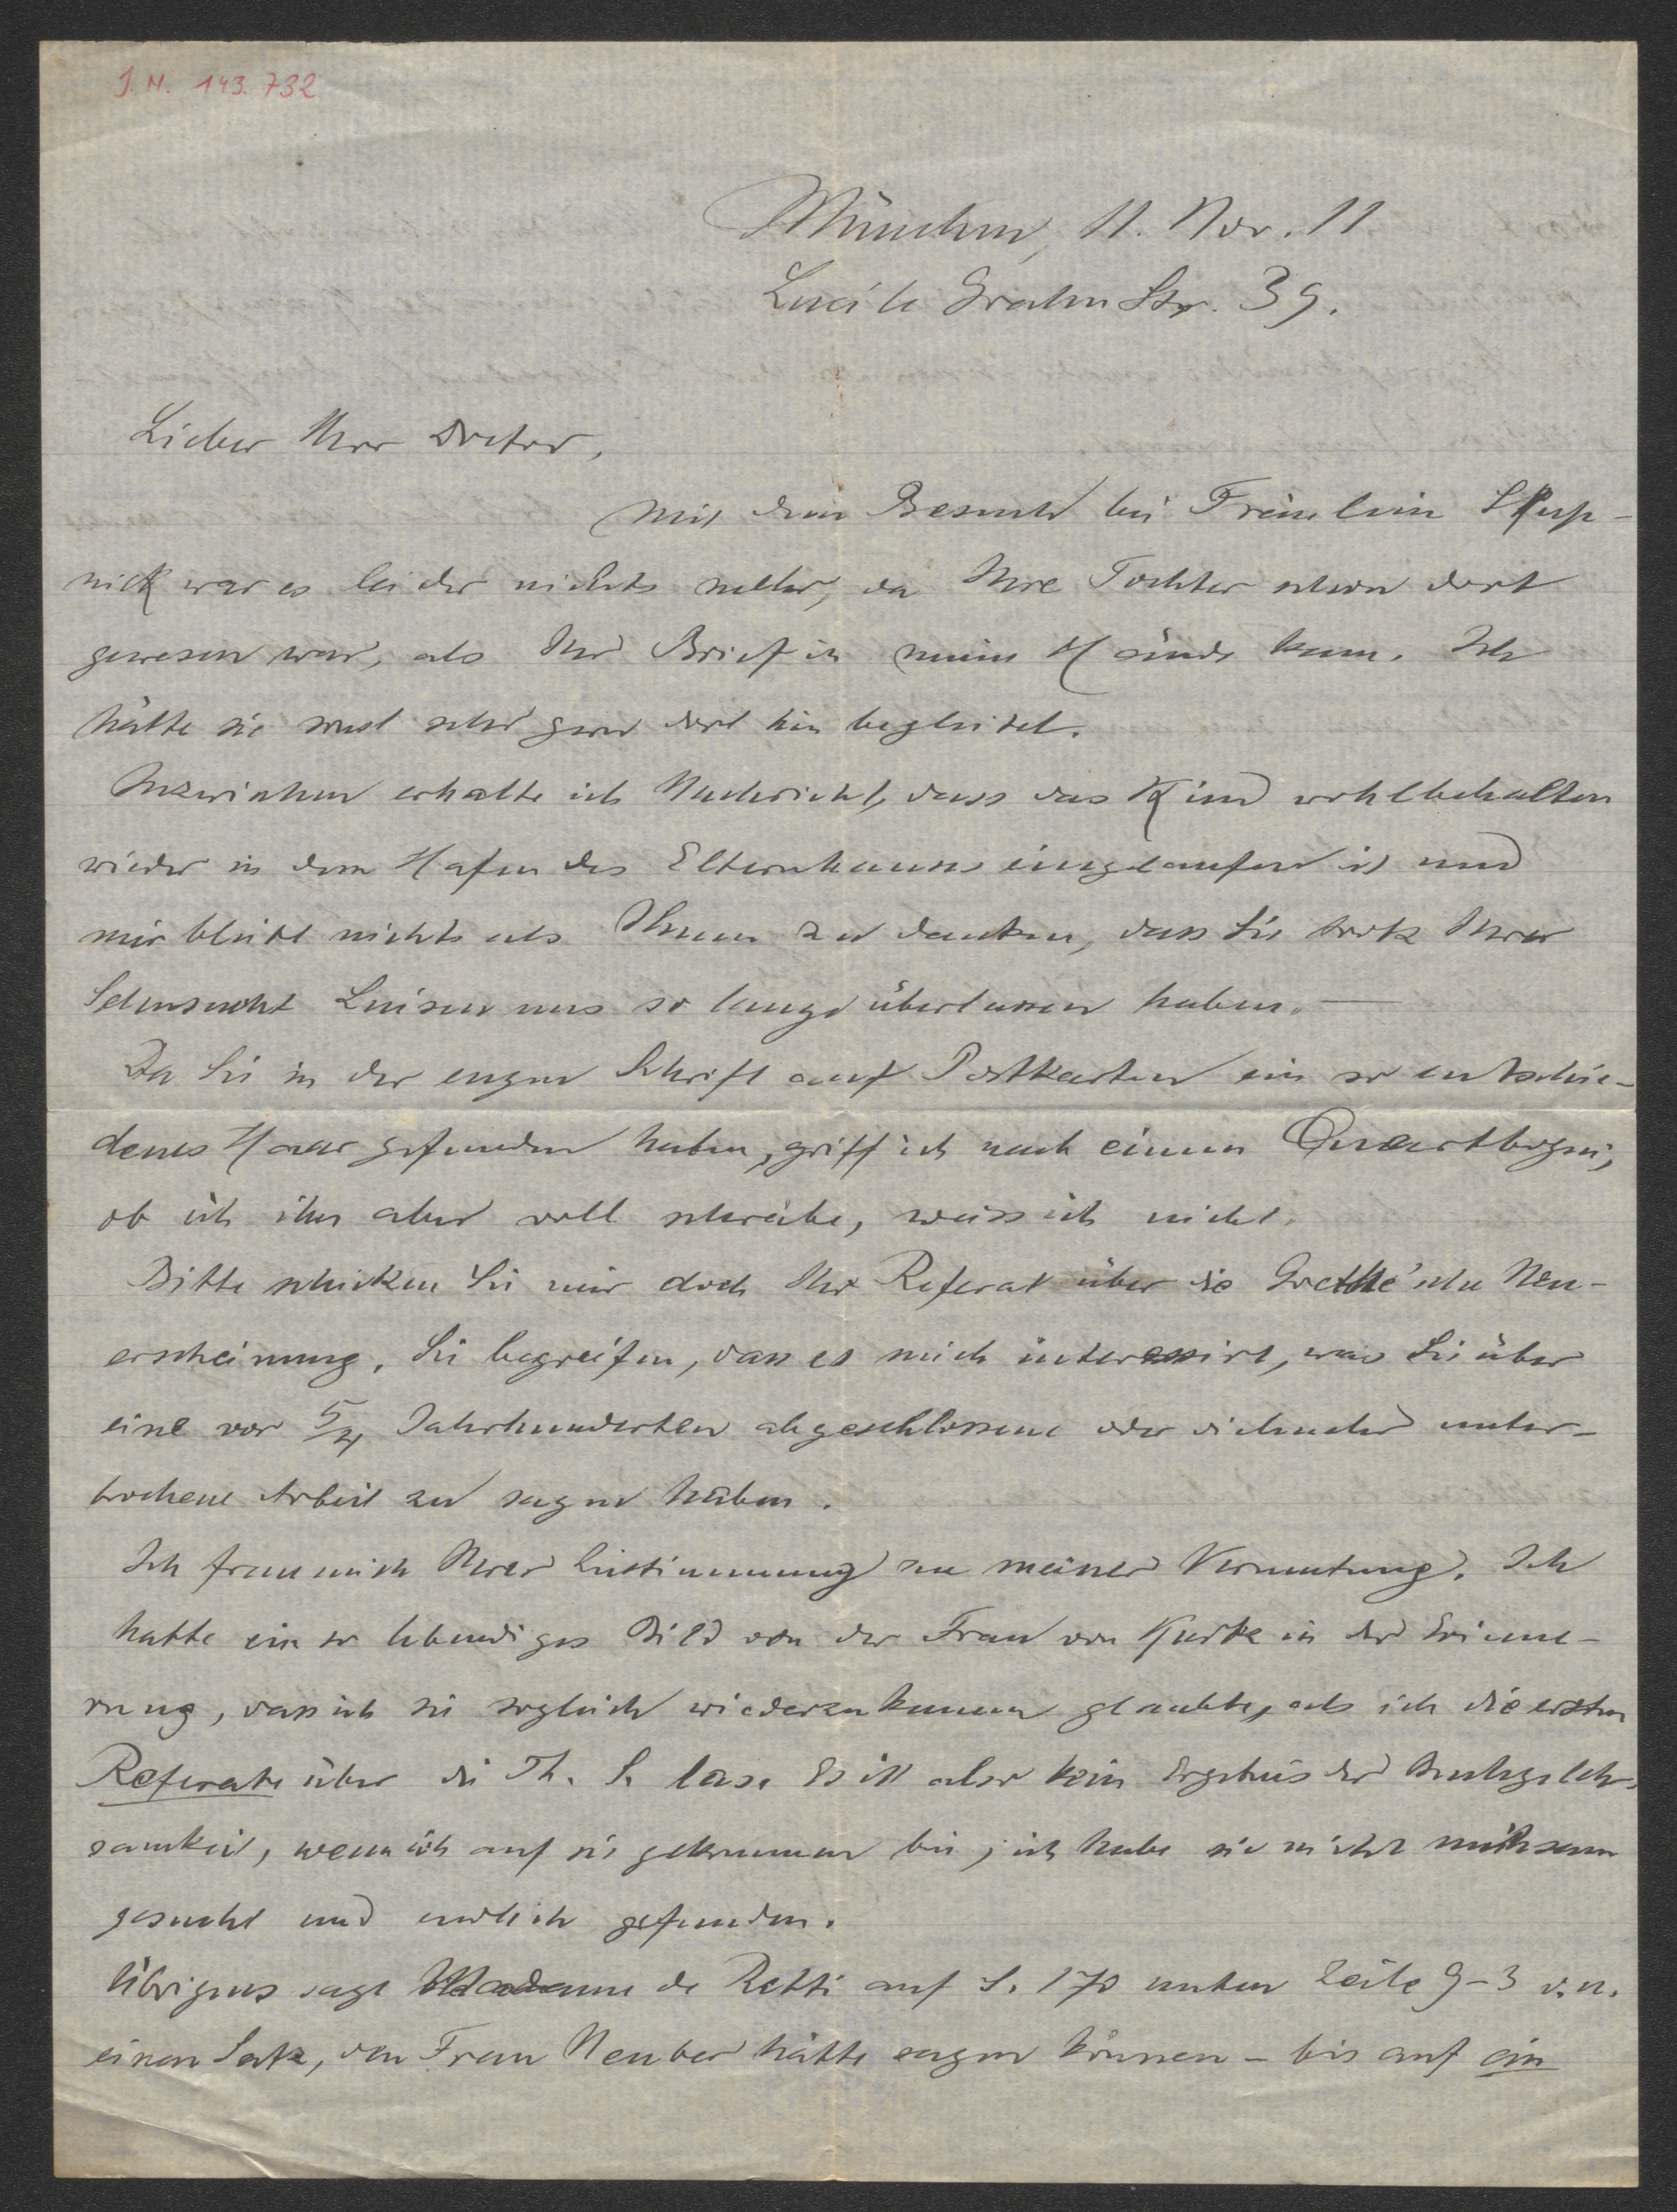 J. N. 143.732
München, 11. Nov. 11
Lucile Grahn Str. 39.
Lieber Herr Doctor,
Mit dem Besuch bei Fräulein Skup-
nick war es leider nichts mehr, da Ihre Tochter schon dort
gewesen war, als Ihr Brief in meine Hände kam. Ich
hätte sie sonst sehr gern dort hin begleitet.
Inzwischen erhalte ich Nachricht, dass das Kind wohlbehalten
wieder in dem Hafen des Elternhauses eingelaufen ist und
mir bleibt nichts als Ihnen zu danken, dass Sie trotz Ihrer
Sehnsucht Luisen uns so lange überlassen haben. —
Da Sie in der engen Schrift auf Postkarten ein so entschie-
denes Haar gefunden haben, griff ich nach einem Quartbogen;
ob ich ihn aber voll schreibe, weiss ich nicht.
Bitte schicken Sie mir doch Ihr Referat über die Goethe'sche Neu-
erscheinung. Sie begreifen, dass es mich interessirt, was Sie über
eine vor 5/4 Jahrhunderten abgeschlossene oder vielmehr unter-
brochene Arbeit zu sagen haben.
Ich freue mich Ihrer Zustimmung zu meiner Vermutung. Ich
hatte ein so lebendiges Bild von der Frau von Kurtz in der Erinne-
rung, dass ich sie sogleich wiederzukennen glaubte, als ich die ersten
Referate über die Th. S. las. Es ist aber kein Ergebnis der Buchgelehr-
samkeit, wenn ich auf sie gekommen bin; ich habe sie nicht mühsam
gesucht und endlich gefunden.
Übrigens sagt Madame de Retti auf S. 170 unten Zeile 9-3 v. u.
einen Satz, den Frau Neuber hätte sagen können - bis auf ein